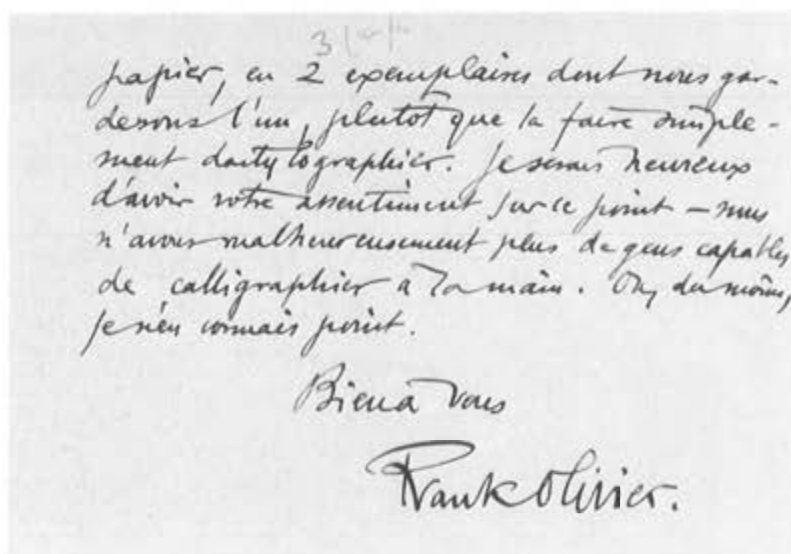 3
papier, en 2 exemplaires dont nous gar-
derons l'un, plutôt que la faire simple-
ment dactylographier. Je serais heureux
d'avoir votre assentiment sur ce point – nous
n'avons malheureusement plus de gens capables
de calligraphier à la main. Ou, du moins,
je n'en connais point.
Bien à vous
Frank Olivier.